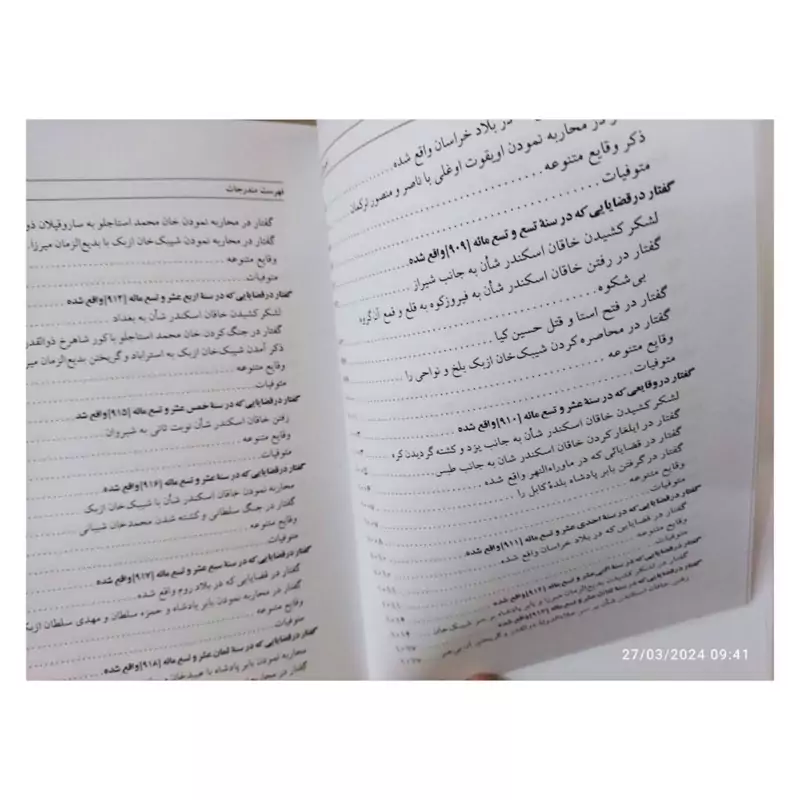 در بلاد خراسان واقع شده
در محاربه نمودن اویقوت اوغلی با ناصر و منصور ترکمان
ذکر وقایع متنوعه
متوفیات
گفتار در قضایایی که در سنهٔ تسع و تسع مائه [۹۰۹] واقع شده
لشکر کشیدن خاقان اسکندر شأن به جانب شیراز
گفتار در رفتن خاقان اسکندر شأن به فیروزکوه به قلع و قمع آن گروه
بی‌شکوه
گفتار در فتح استا و قتل حسین کیا
گفتار در محاصره کردن شیبک‌خان ازبک بلخ و نواحی را
وقایع متنوعه
متوفیات
گفتار در وقایعی که در سنهٔ عشر و تسع مائه [۹۱۰] واقع شده
لشکر کشیدن خاقان اسکندر شأن به جانب یزد و کشته گردیدن کره
گفتار در ایلغار کردن خاقان اسکندر شان به جانب طبس
گفتار در قضایائی که در ماوراءالنهر واقع شده
گفتار در گرفتن بابر پادشاه بلدهٔ کابل را
وقایع متنوعه
متوفیات
گفتار در قضایایی که در سنهٔ احدی عشر و تسع مائه [۹۱۱] واقع شده
گفتار در قضایایی که در بلاد خراسان واقع شده
وقایع متنوعه
متوفیات
گفتار در قضایایی که در سنهٔ اثنی عشر و تسع مائه [۹۱۲] واقع شده
گفتار در لشکر کشیدن بدیع‌الزمان میرزا و بابر پادشاه بر سر شیبک‌خان
گفتار در قضایایی که در سنهٔ ثلث عشر و تسع مائه [۹۱۳] واقع شده
رفتن خاقان اسکندر شأن بر سر علاءالدوله ذوالقدر و گریختن آن بی‌هنر
فهرست مندرجات
گفتار در محاربه نمودن خان محمد استاجلو به ساروقپلان ذو
گفتار در محاربه نمودن شیبک‌خان ازبک با بدیع‌الزمان میرزا
وقایع متنوعه
متوفیات
گفتار در قضایایی که در سنهٔ اربع عشر و تسع مائه [۹۱۴] واقع شده
لشکر کشیدن خاقان اسکندر شأن به بغداد
گفتار در جنگ کردن خان محمد استاجلو با کور شاهرخ ذوالقدر
ذکر آمدن شیبک‌خان ازبک به استراباد و گریختن بدیع‌الزمان میر
وقایع متنوعه
متوفیات
گفتار در قضایایی که در سنهٔ خمس عشر و تسع مائه [۹۱۵] واقع شد
رفتن خاقان اسکندر شأن نوبت ثانی به شیروان
وقایع متنوعه
متوفیات
گفتار در قضایایی که در سنهٔ عشر و تسع مائه [۹۱۶] واقع شده
محاربه نمودن خاقان اسکندر شأن با شیبک‌خان ازبک
گفتار در جنگ سلطانی و کشته شدن محمدخان شیبانی
وقایع متنوعه
متوفیات
گفتار در قضایایی که در سنهٔ سبع عشر و تسع مائه [۹۱۷] واقع شده
گفتار در قضایایی که در بلاد روم واقع شده
گفتار در محاربه نمودن بابر پادشاه و حمزه سلطان و مهدی سلطان ازبک
وقایع متنوعه
متوفیات
گفتار در قضایایی که در سنهٔ ثمان عشر و تسع مائه [۹۱۸] واقع شده
محاربه نمودن بابر پادشاه با عبیدخان
27/03/2024 09:41